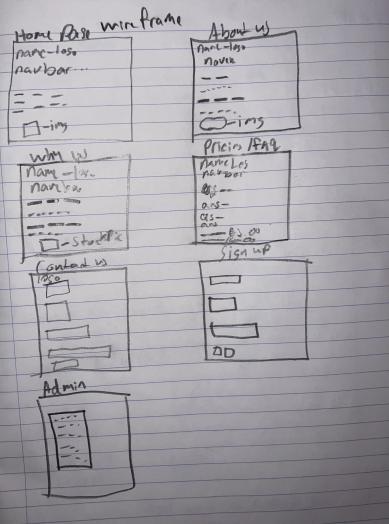 Home Page wireframe
name-logo
navbar...
-img
About us
name-logo
-img
Why us
name-logo
navbar
- StockPic
Pricing/faq
name Log
navbar
qs-
ans-
qs-
ans
Contact us
logo
Sign up
Admin